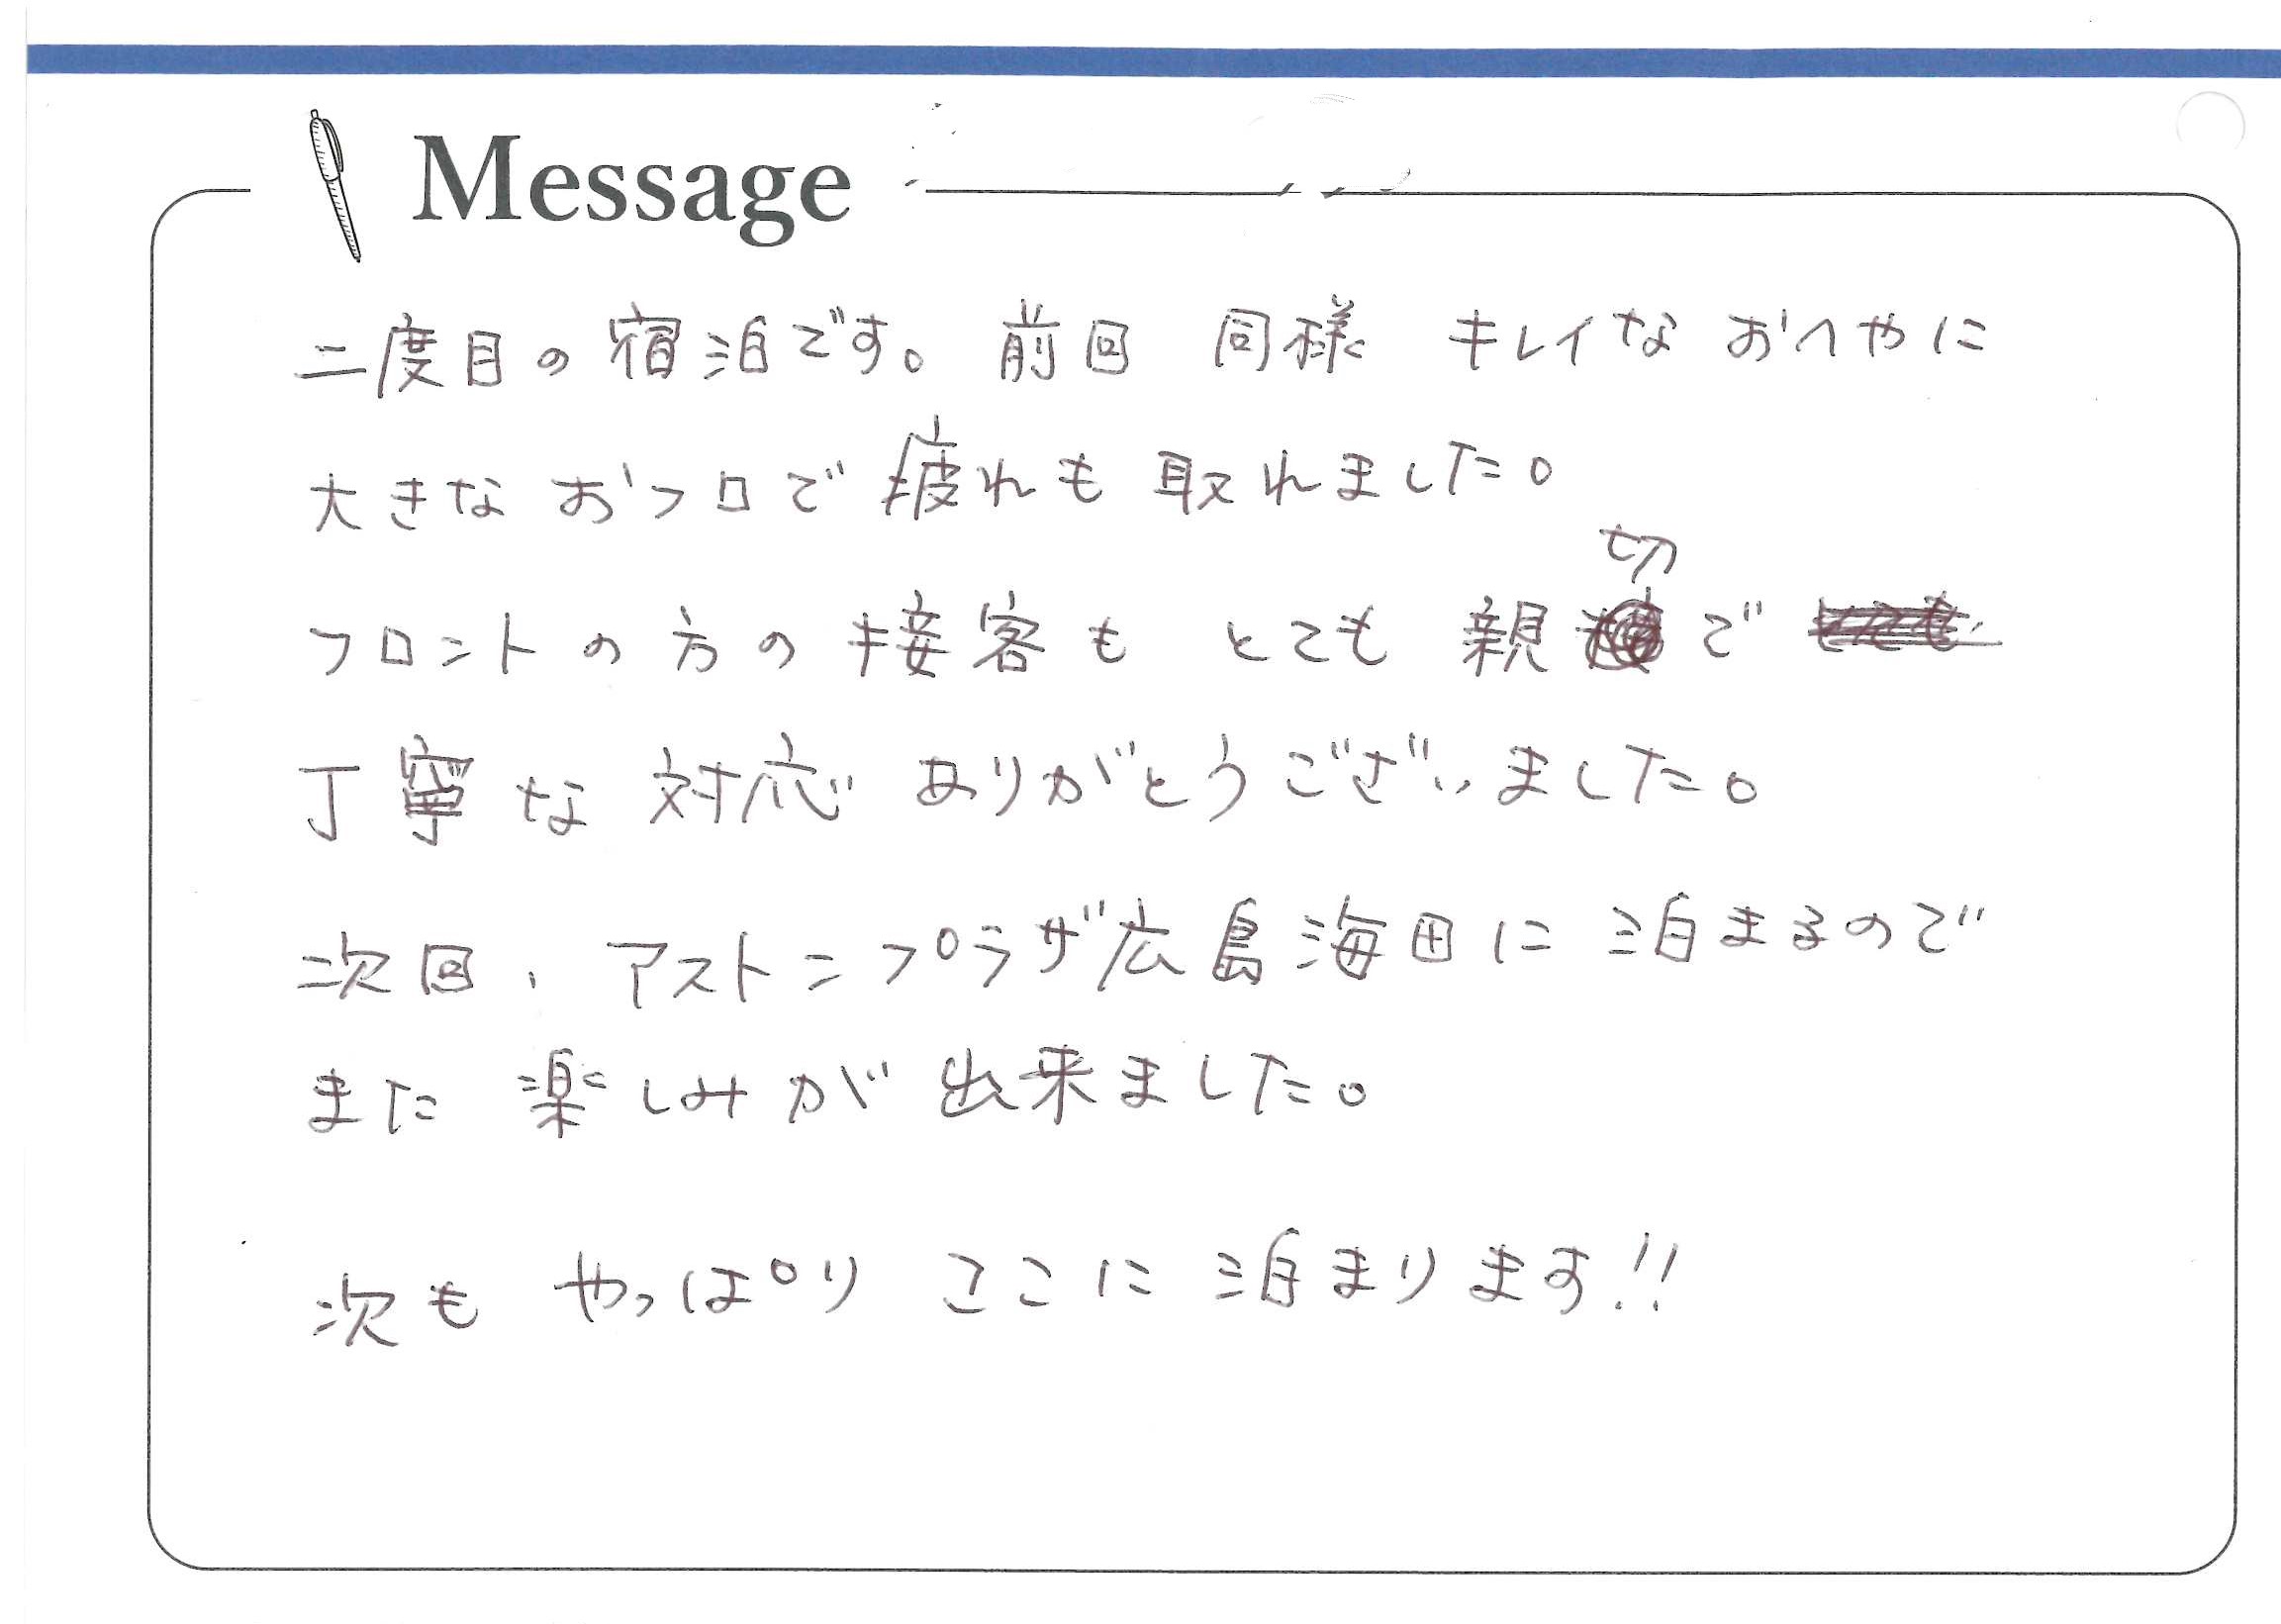 Message
二度目の宿泊です。前回 同様 キレイな おへやに
大きな おフロで 疲れも 取れました。
フロントの方の接客も とても 親切で
丁寧な 対応 ありがとうございました。
次回、アストンプラザ広島海田に 泊まるので
また 楽しみが 出来ました。
次も やっぱり ここに 泊まります!!